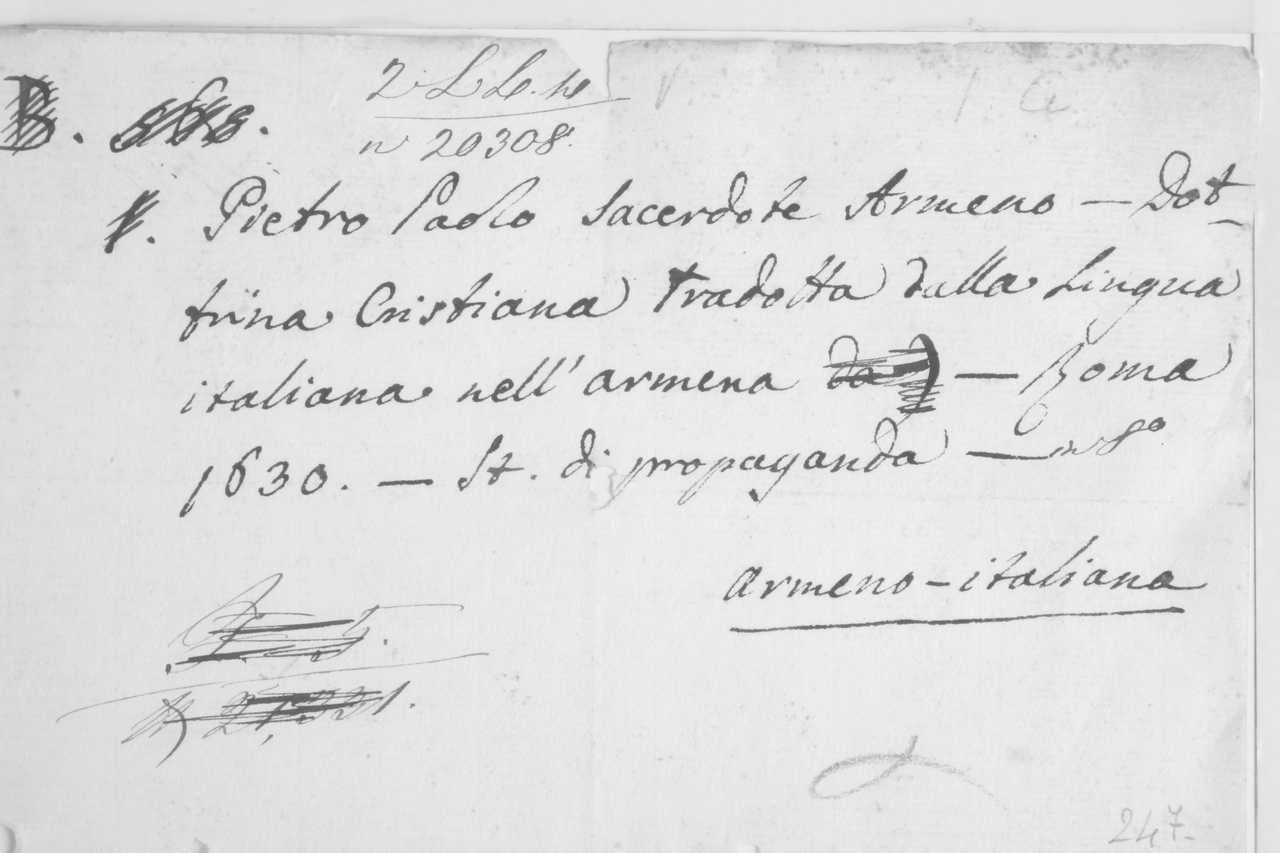 n 20308.
Pietro Paolo Sacerdote Armeno — Dot-
trina Cristiana tradotta dalla Lingua
italiana nell' armena — Roma
1630. — St. di propaganda — in 8°
armeno-italiana
247-